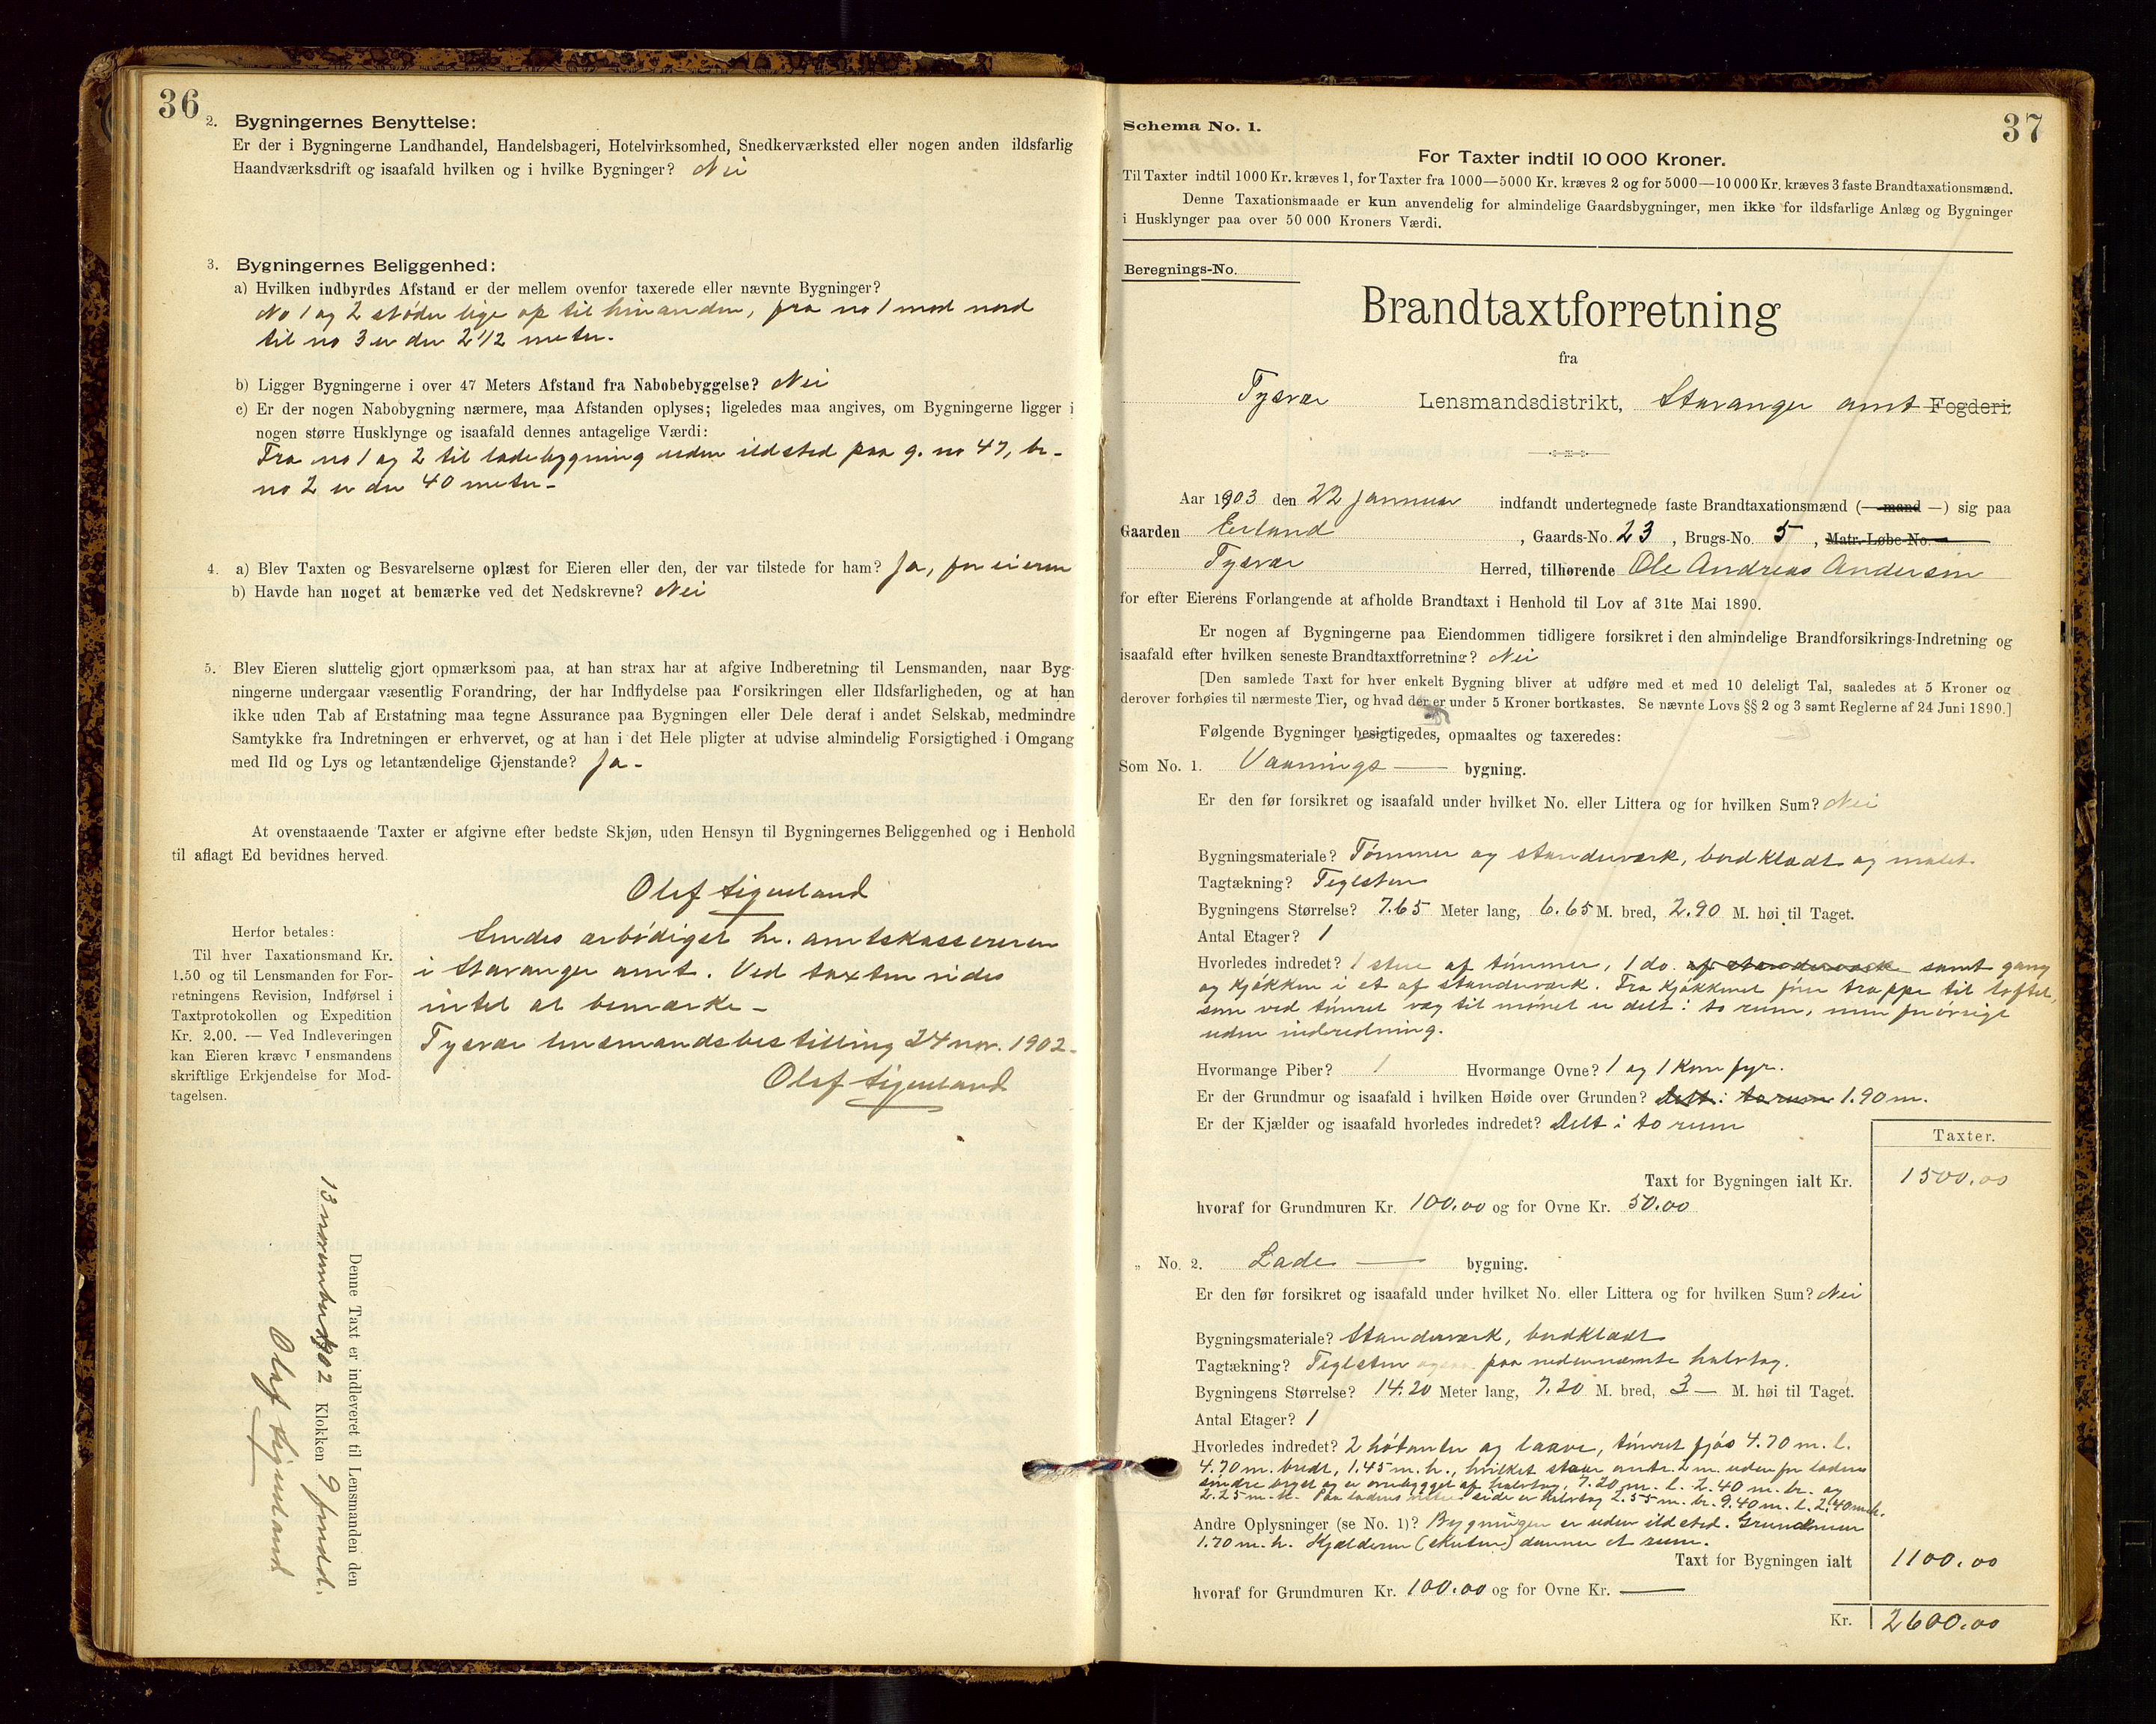 36
2. Bygningernes Benyttelse:
Er der i Bygningerne Landhandel, Handelsbageri, Hotelvirksomhed, Snedkerværksted eller nogen anden ildsfarlig
Haandværksdrift og isaafald hvilken og i hvilke Bygninger? Nei
3. Bygningernes Beliggenhed:
a) Hvilken indbyrdes Afstand er der mellem ovenfor taxerede eller nævnte Bygninger?
No 1 og 2 støder lige op til hinanden, fra no 1 mod nord
til no 3 er der 2 1/2 meter.
b) Ligger Bygningerne i over 47 Meters Afstand fra Nabobebyggelse? Nei
c) Er der nogen Nabobygning nærmere, maa Afstanden oplyses; ligeledes maa angives, om Bygningerne ligger i
nogen større Husklynge og isaafald dennes antagelige Værdi:
Fra no 1 og 2 til ladebygning uden ildsted paa g. no 47, br-
no 2 er der 40 meter-
4. a) Blev Taxten og Besvarelserne oplæst for Eieren eller den, der var tilstede for ham? Ja, for eieren
b) Havde han noget at bemærke ved det Nedskrevne? Nei
5. Blev Eieren sluttelig gjort opmærksom paa, at han strax har at afgive Indberetning til Lensmanden, naar Byg-
ningerne undergaar væsentlig Forandring, der har Indflydelse paa Forsikringen eller Ildsfarligheden, og at han
ikke uden Tab af Erstatning maa tegne Assurance paa Bygningen eller Dele deraf i andet Selskab, medmindre
Samtykke fra Indretningen er erhvervet, og at han i det Hele pligter at udvise almindelig Forsigtighed i Omgang
med Ild og Lys og letantændelige Gjenstande? Ja-
At ovenstaaende Taxter er afgivne efter bedste Skjøn, uden Hensyn til Bygningernes Beliggenhed og i Henhold
til aflagt Ed bevidnes herved.
Olaf
Herfor betales:
Til hver Taxationsmand Kr.
1.50 og til Lensmanden for For-
retningens Revision, Indførsel i
Taxtprotokollen og Expedition
Kr. 2.00. — Ved Indleveringen
kan Eieren kræve Lensmandens
skriftlige Erkjendelse for Mod-
tagelsen.
Sendes ærbødigst hr. amtskassereren
i Stavanger amt. Ved taxten vides
intet at bemærke-
Tysvær lensmandsbestilling 24 nov. 1902-
Olaf
Denne Taxt er indleveret til Lensmanden den
13 november 1902 Klokken 9 formd.
Olaf
37
Schema No. 1.
For Taxter indtil 10 000 Kroner.
Til Taxter indtil 1000 Kr. kræves 1, for Taxter fra 1000—5000 Kr. kræves 2 og for 5000—10 000 Kr. kræves 3 faste Brandtaxationsmænd.
Denne Taxationsmaade er kun anvendelig for almindelige Gaardsbygninger, men ikke for ildsfarlige Anlæg og Bygninger
i Husklynger paa over 50 000 Kroners Værdi.
Beregnings-No.
Brandtaxtforretning
fra
Tysvær Lensmandsdistrikt, Stavanger amt Fogderi.
Aar 1903 den 22 januar indfandt undertegnede faste Brandtaxationsmænd (— mand —) sig paa
Gaarden Eirland, Gaards-No. 23, Brugs-No. 5, Matr.-Løbe-No.
Tysvær Herred, tilhørende Ole Andreas Andersen
for efter Eierens Forlangende at afholde Brandtaxt i Henhold til Lov af 31te Mai 1890.
Er nogen af Bygningerne paa Eiendommen tidligere forsikret i den almindelige Brandforsikrings-Indretning og
isaafald efter hvilken seneste Brandtaxtforretning? Nei
[Den samlede Taxt for hver enkelt Bygning bliver at udføre med et med 10 deleligt Tal, saaledes at 5 Kroner og
derover forhøies til nærmeste Tier, og hvad der er under 5 Kroner bortkastes. Se nævnte Lovs §§ 2 og 3 samt Reglerne af 24 Juni 1890.]
Følgende Bygninger besigtigedes, opmaaltes og taxeredes:
Som No. 1. Vaanings— bygning.
Er den før forsikret og isaafald under hvilket No. eller Littera og for hvilken Sum? Nei
Bygningsmateriale? Tømmer og standerværk, bordklædt og malet.
Tagtækning? Teglsten
Bygningens Størrelse? 7.65 Meter lang, 6.65 M. bred, 2.90 M. høi til Taget.
Antal Etager? 1
Hvorledes indredet? 1 stue af tømmer, 1 do. af standerværk samt gang
og kjøkken i et af standerværk. Fra kjøkkenet fører trappe til loftet,
som ved tømret væg til mønet er delt i to rum, men forøvrigt
uden indredning.
Hvormange Piber? 1 Hvormange Ovne? 1 og 1 komfyr.
Er der Grundmur og isaafald i hvilken Høide over Grunden? Delt i to rum 1.90 m.
Er der Kjælder og isaafald hvorledes indredet? Delt i to rum
Taxter.
Taxt for Bygningen ialt Kr. 1500.00
hvoraf for Grundmuren Kr. 100.00 og for Ovne Kr. 50.00
„ No. 2. Lade — bygning.
Er den før forsikret og isaafald under hvilket No. eller Littera og for hvilken Sum? Nei
Bygningsmateriale? Standerværk, bordklædt
Tagtækning? Teglsten ogsaa paa nedennævnte halvtag.
Bygningens Størrelse? 14.20 Meter lang, 7.20 M. bred, 3— M. høi til Taget.
Antal Etager? 1
Hvorledes indredet? 2 høtanter og laave, tømret fjøs 4.70 m. l.
4.70 m. bredt, 1.45 m. h., hvilket staar omtr. 2 m. uden for ladens
søndre væg og er ombygget af halvtag, 7.20 m. l. 2.40 m. br. og
2.25 m. h. Paa ladens side er halvtag 2.55 m. br. 9.40 m. l. 2.40 m. h.
Andre Oplysninger (se No. 1)? Bygningen er uden ildsted. Grundmur
1.70 m. h. Kjælderen (skuten) danner et rum.
Taxt for Bygningen ialt 1100.00
hvoraf for Grundmuren Kr. 100.00 og for Ovne Kr. —
Kr. 2600.00